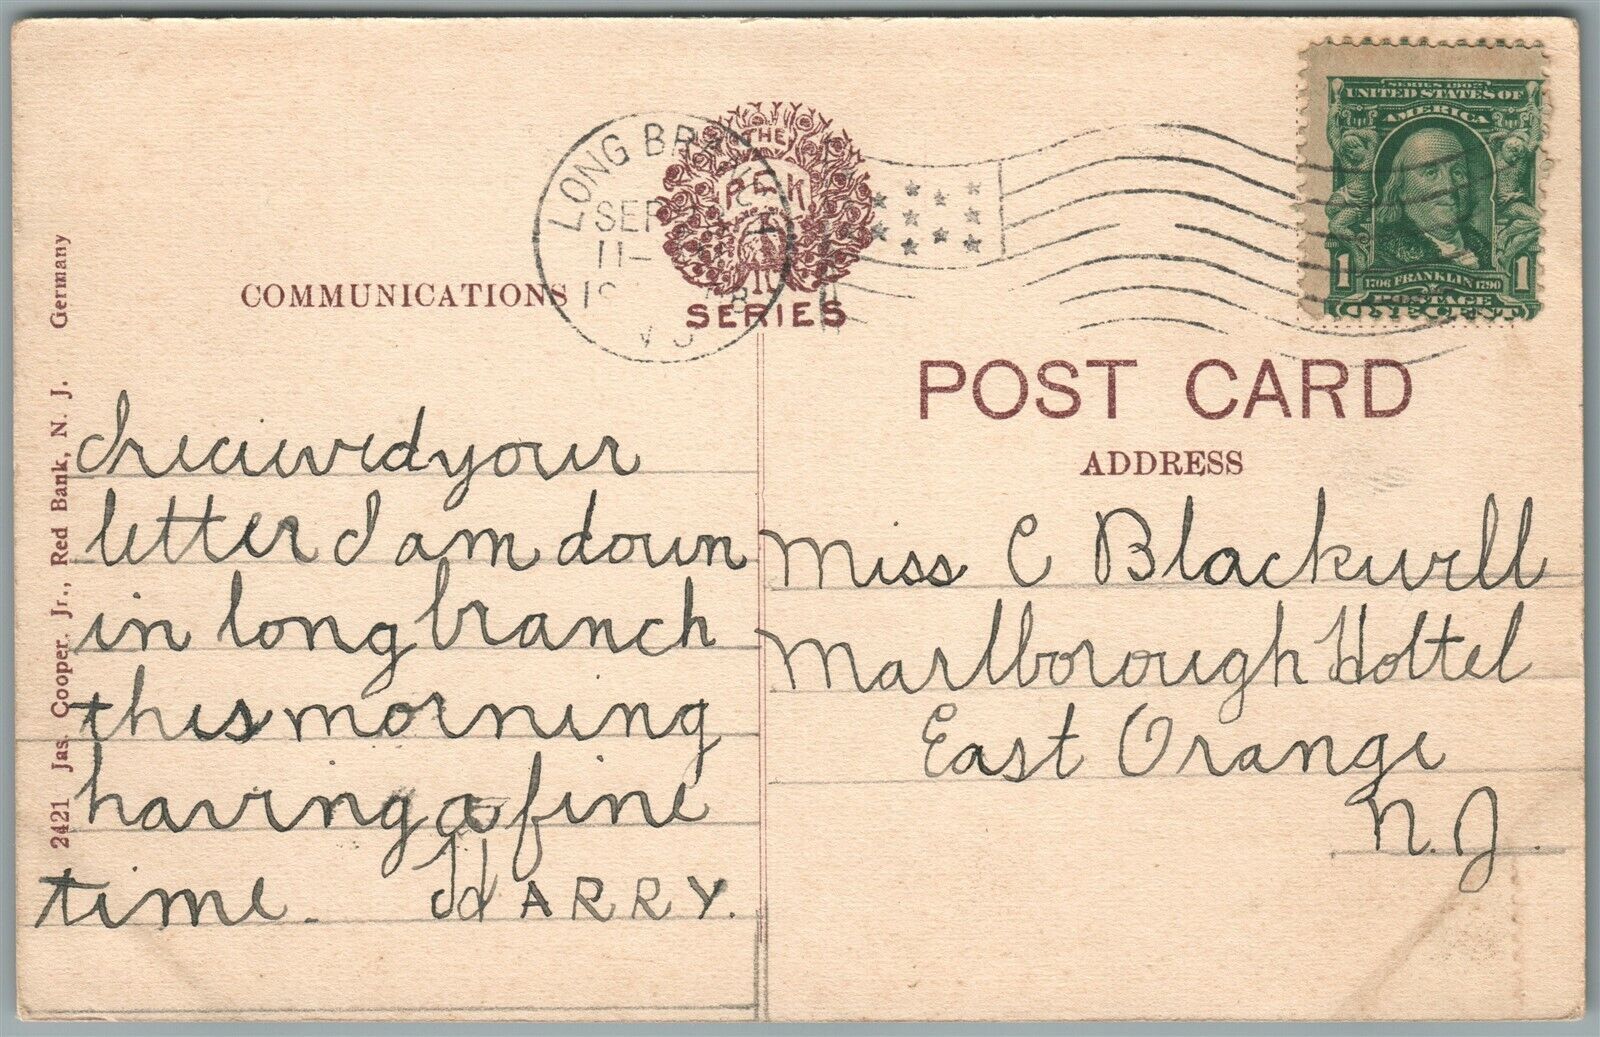 SERIES 1902
UNITED STATES OF
AMERICA
1 1706 FRANKLIN 1790 1
POSTAGE
ONE CENT
LONG BRANCH
SEP
11-
THE
P.C.K.
SERIES
COMMUNICATIONS
POST CARD
ADDRESS
2421 Jas. Cooper, Jr., Red Bank, N. J. Germany
I recieived your
letter I am down
in long branch
this morning
having a fine
time. HARRY.
Miss C Blackwell
Marlborough Holtel
East Orange
N.J.